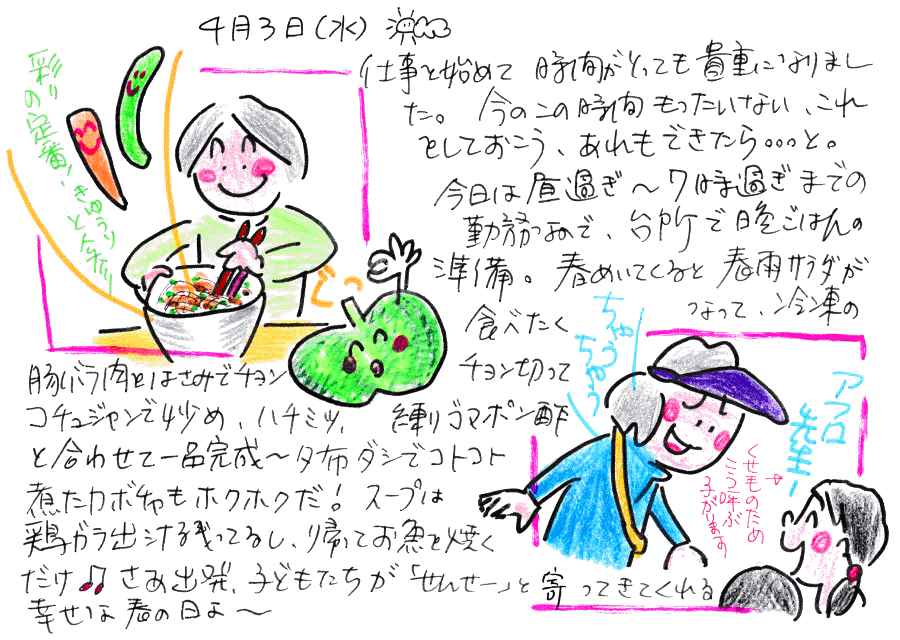 4月3日(水)
仕事を始めて 時間がとっても貴重になりまし
た。 今のこの時間もったいない、これ
をしておこう、あれもできたら...と。
今日は昼過ぎ〜7時過ぎまでの
勤務なので、台所で晩ごはんの
準備。 春めいてくると 春雨サラダが
食べたく なって、冷凍の
豚バラ肉をはさみでチョン チョン切って
コチュジャンで炒め、ハチミツ、 練りゴマポン酢
と合わせて一品完成〜昆布ダシでコトコト
煮たカボチャもホクホクだ! スープは
鶏ガラ出汁残ってるし、帰ってお魚を焼く
だけ♫ さあ出発、子どもたちが「せんせー」と寄ってきてくれる
幸せな春の日よ〜
彩りの定番、きゅうり
と
どっ
ちゅう
ちゅう
アフロ
先生ー
くせ毛のため
こう呼ぶ
子がいます